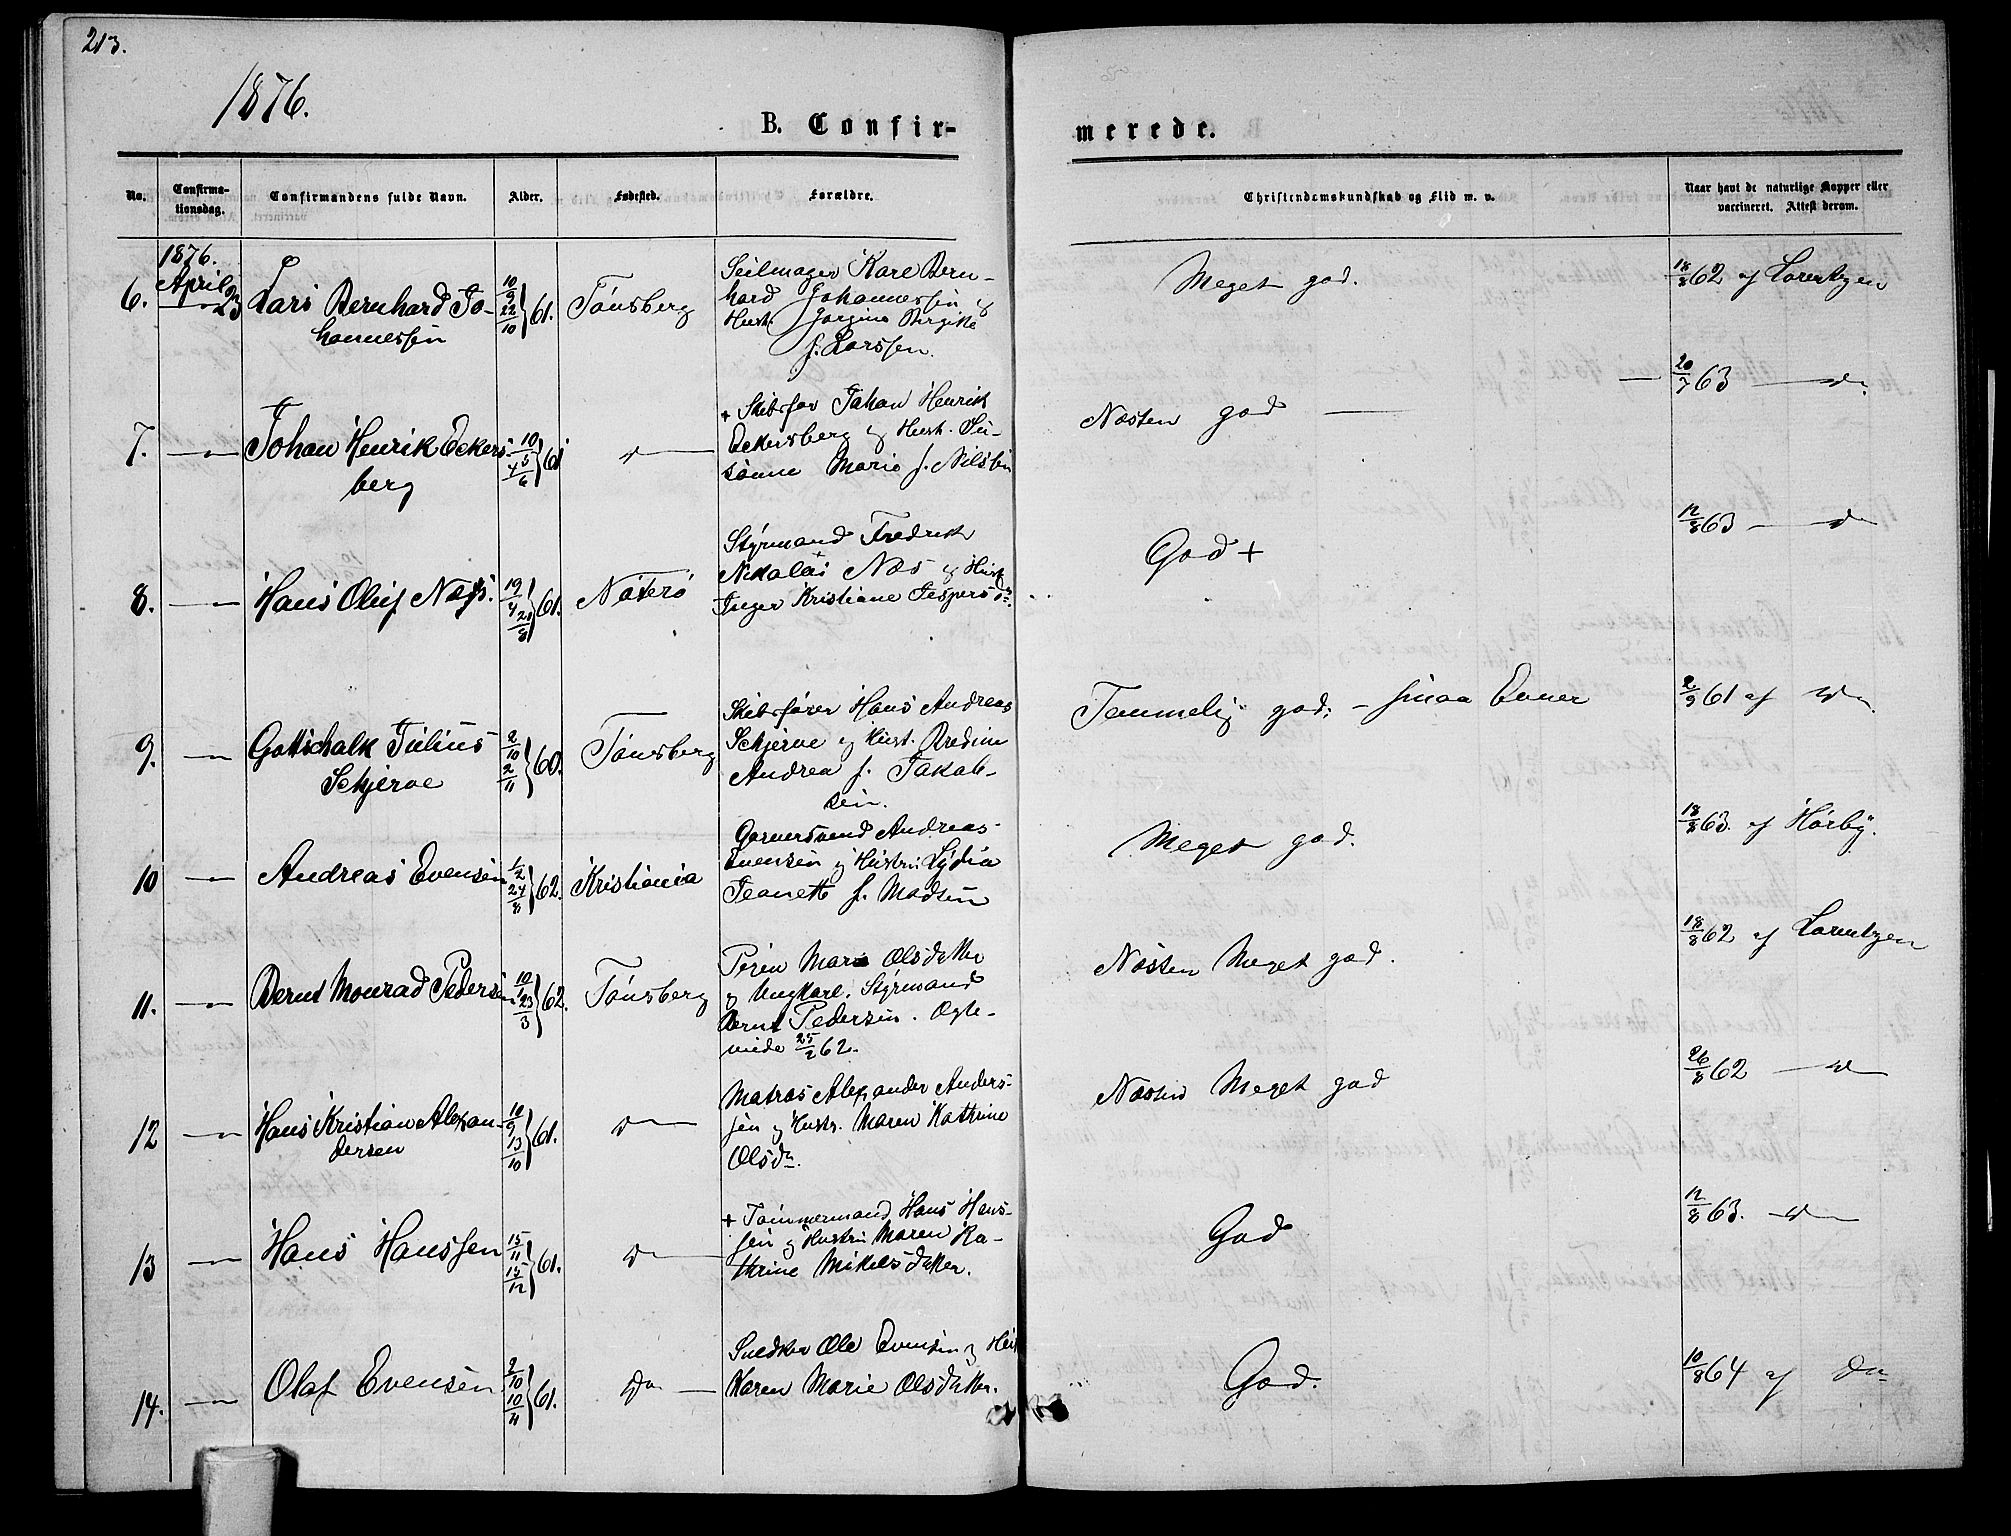 213.
1876.
B. Confir-
merede.
No.
Confirma-
tionsdag.
Confirmandens fulde Navn.
Alder.
Fødested.
Forældre.
Christendomskundskab og Flid m. v.
Naar havt de naturlige Kopper eller
vaccineret. Attest derom.
1876.
April
6. 23 Lars Bernhard Jo-
hannessen
10/9 22/10 } 61. Tönsberg
Seilmager Karl Bern-
hard Johannessen og
Hustr. Jorgine Birgitte
f. Larssen.
Meget god.
18/8 62 af Lorentzen
7. — Johan Henrik Eckers-
berg
10/4 5/6 } 61 do
+ Skibsfør Johan Henrik
Eckersberg og Hust. Su-
sanne Marie f. Nilssen
Næsten god —
— 20/7 63 — do
8. — Hans Oluf Næss.
19/4 20/8 } 61. Nöterö
Styrmand Fredrik
Nikolai Næs og Hust
Inger Kristiane Jespersdr.
God +
12/8 63 — do
9. — Gottschalk Julius
Schjerve
2/10 2/11 } 60. Tönsberg
Skibsfører Hans Andreas
Schjerve og Hust. Bredine
Andrea f. Jakob-
sen.
Temmelig god; – smaa Evner
2/9 61 af do
10 — Andreas Evensen
1/2 24/8 } 62. Kristiania
Garversvend Andreas
Evensen og Hustru Lydia
Jeanette f. Madsen
Meget god.
18/8 63. af Hörbÿ.
11. — Bernt Monrad Pedersen
10/1 23/3 } 62. Tönsberg
Peren Marie Olsdatter
og Ungkarl. Styrmand
Bernt Pedersen. Ægte-
viede 25/2 62.
Næsten Meget god.
18/8 62 af Lorentzen
12 — Hans Kristian Alexan-
dersen
10/9 13/10 } 61. do
Matros Alexander Anders-
sen og Hustr. Maren Kathrine
Olsdr.
Næsten Meget god
26/8 62 — do
13 — Hans Hanssen
15/11 15/12 } 61. do
+ Tömmermand Hans Hans-
sen og Hustru Maren Ka-
thrine Mikelsdatter.
God
12/8 63. — do
14. — Olaf Evensen
2/10 10/11 } 61. do —
Snedker Ole Evensen og Hust
Karen Marie Olsdatter.
God.
10/8 64 af do